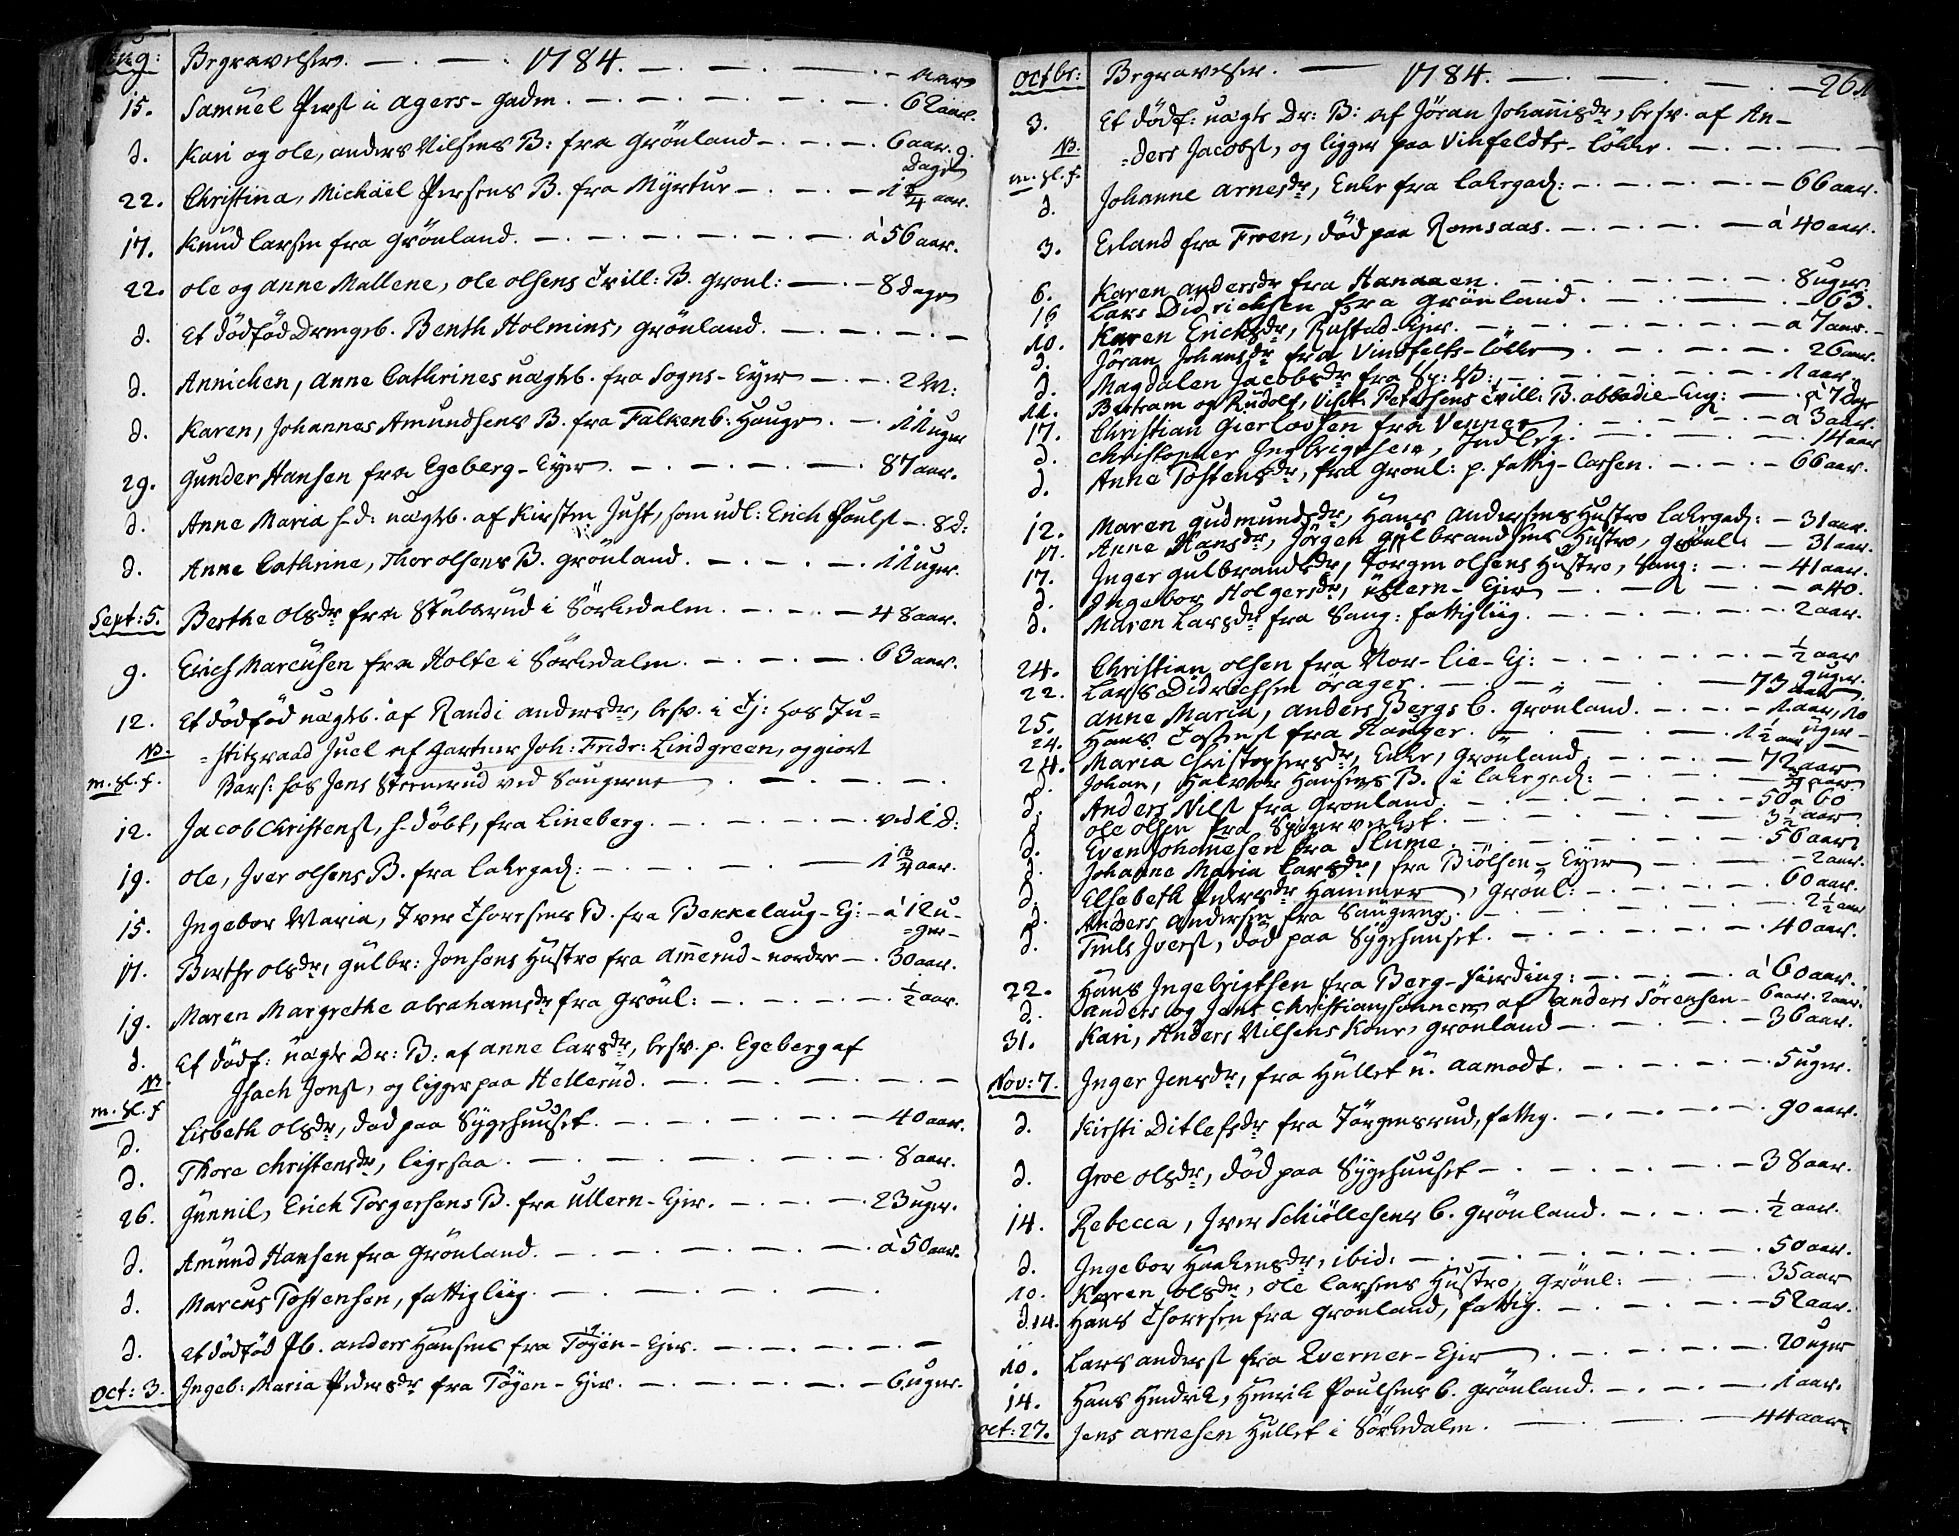 Aug: Begravelser. — . — . 1784. — . — . — . — aar
15. Samuel Pers: i Agers-gaden. — . — . — . — . — 62 aar.
d. Kari og Ole, Anders Nilsens B: fra Grönland — . — . — 6 aar. 9.
Dage
22. Christina, Michäel Persens B. fra Myrtue — . — . — 1 3/4 aar.
17. Knud Larsen fra Grönland. — . — . — . — . — á 56 aar.
22. Ole og Anne Mallene, Ole Olsens Tvill: B. Gronl: — . — 8 Dage
d. Et dödföd Drengeb. Benth Holmins, Grönland. — . — . — . —
d. Annichen, Anne Cathrines uægteb. fra Sogns-Eyer — . — . — 2 M:
d. Karen, Johannes Amundsens B. fra Falkenb: Houge . — 11 uger
29. Gunder Hansen fra Egeberg-Eyer. — . — . — . — 87 aar.
d. Anne Maria h-d: uægteb. af Kirsten Just, som udl: Erich Pouls: — . 8 d:
d. Anne Cathrine, Thor Olsens B. Grönland. — . — . — . — 11 uger.
Sept: 5. Berthe Olsdr fra Stubberud i Sörkedalen. — . — . — 48 aar.
9. Erich Marcusen fra Holte i Sörkedalen. — . — . — . — 63 aar.
12. Et dödföd uægteb. af Randi Andersdr, besv. i Tj: hos Ju-
NB. =stitzraad Juel af Gartner Joh: Fridr: Lindgreen, og giort
m. sl. f. Bars: hos Jens Steenerud ved Saugerne . — . — . — .
12. Jacob Christens:, h-döbt, fra Lineberg. — . — . — . — ved 1 D:
19. Ole, Iver Olsens B. fra Lakegad: — . — . — . — 1 3/4 aar.
15. Ingebor Maria, Iver Thoresens B. fra Bekkelaug-Ej: — á 12 u-
=ger —
17. Berthe Olsdr, Gulbr: Jonsons Hustro fra Ammerud-nordre — . 30 aar.
19. Maren Margrethe Abrahamsdr fra Grönl: — . — . — . — 1/2 aar.
d. Et dödf: uægte Dr: B: af Anne Larsdr, besv. p. Egeberg af
NB. Isach Jons:, og ligger paa Hellerud. — . — . — . — . —
m. sl. f
d. Lisbeth Olsdr, död paa Sygehuuset. — . — . — . — 40 aar.
d. Thore Christensdr, ligesaa. — . — . — . — . — 8 aar.
26. Gunnil, Erich Torgersens B. fra Ullern-Ejer. — . — . — 23 uger.
d. Amund Hansen fra Grönland. — . — . — . — . — á 50 aar.
d. Marcus Tostensen, fattig liig. — . — . — . — . —
d. Et dödföd Pb. Anders Hansens fra Töyen-Ejer. — . — . — . — . —
Oct: 3. Ingeb: Maria Pedersdr fra Töyen-Ejer. — . — . — . — 6 uger.
Octbr: Begravelser. — 1784. — . — . — . — 261
3. Et dödf: uægte Dr: B: af Jöran Johannisdr, besv. af An-
NB. =ders Jacobs:, og ligger paa Vinfeldts-Lökke. — . — . — . —
m. sl. f.
d. Johanne Arnesdr, Enke fra Lakegad: — . — . — . — . — 66 aar.
3. Erland fra Froen, död paa Romsaas. — . — . — . — á 40 aar.
6. Karen Andersdr fra Hanaaen. — . — . — . — . — 8 uger.
16 Lars Didrichsen fra Grönland. — . — . — 63.
10. Karen Erichsdr, Rustad-Ejer. — . — . — . — . — á 7 aar. —
d. Jöran Johansdr fra Vindfelts-Lökke . — . — . — . — 26 aar.
d. Magdalen Jacobsdr fra Sp: W: — . — . — . — . — 1 aar.
11. Bertram og Rudolf, Petersens Tvill: B. Abbedie-Eng: — . á 7 Dage
17. Christian Gierlovsen fra Venner . — . — . — . — á 3 aar.
d. Christopher Ingbrigtsen, Indleg. — . — . — . — . 14 aar
d. Anne Tostensdr, fra Gronl: p. fattig-Cassen. — . — . — 66 aar.
12. Maren Gudmundsdr, Hans Andersens Hustro Lakegad: — 31 aar.
17. Anne Hansdr, Jörgen Gulbrandsens Hustro, Grönl: — 31 aar.
17. Inger Gulbrandsdr, Jörgen Olsens Hustro, Saug: — . — 41 aar.
d. Ingebor Holgersdr, Ullern-Ejer — . — . — . — á 40.
d. Maren Larsdr fra Saug: fattigliig. — . — . — . — 2 aar.
24. Christian Olsen fra Nor-Lie-Ej: — . — . — . — . — 1/2 aar
9 uger.
22. Lars Didrichsen Örager. — . — . — . — . — 73 aar.
25. Anne Maria, Anders Bergs B. Grönland. — . — . — 1 aar, 10
uger —
24. Hans Tostens: fra Hauger. — . — . — . — 1 1/2 aar. —
24. Maria Christophersdr, Enke, Grönland. — . — . — 72 aar
d. Johan, Halvor Hansens B. i Lakegad: — . — . — . — 3/4 aar
d. Anders Nils: fra Gronland. — . — . — . — . — 50 á 60
d. Ole Olsen fra Spigerverket. — . — . — . — . — 3 1/2 aar
d. Even Johanesen fra Slume. — . — . — . — . — 56 aar.
d. Johanne Maria Larsdr, fra Biölsen-Eyer — . — . — 2 aar.
d. Elsebeth Pedersdr Hammer, Grönl: — . — . — . — 60 aar.
d. Anders Andersen fra Saugerne. — . — . — . — . — 2 1/2 aar
d. Truls Ivers:, död paa Sygehuuset. — . — . — . — . — 40 aar.
22. Hans Ingebrigtsen fra Berg-Fierding: — . — . — á 60 aar.
d. Anders og Jens Christian Sönner af Anders Sörensen — 6 aar. 2 aar.
31. Kari, Anders Nilsens Kone, Gronland — . — . — . — 36 aar.
Nov: 7. Inger Jensdr, fra Hullet u. Aamodt. — . — . — . — 5 uger.
d. Kirsti Ditlefsdr fra Jörgensrud, fattig. — . — . — . — 90 aar.
d. Groe Olsdr, död paa Sygehuuset — . — . — . — . — 38 aar.
14. Rebecca, Iver Schiöllesens B. Grönland. — . — . — 1/2 aar.
d. Ingebor Haakensdr, ibid: — . — . — . — . — . — 50 aar.
10. Karen Olsdr, Ole Larsens Hustro, Grönl: — . — . — 35 aar
d. 14. Hans Thoresen fra Gronland, fattig. — . — . — . — 52 aar.
10. Lars Anders: fra Qverner-Ejer . — . — . — . — 20 uger
14. Hans Hendrik, Henrik Poulsens B. Grönland. — . — . — 1 aar.
Oct: 27. Jens Arnesen Hullet i Sörkedalen. — . — . — 44 aar.